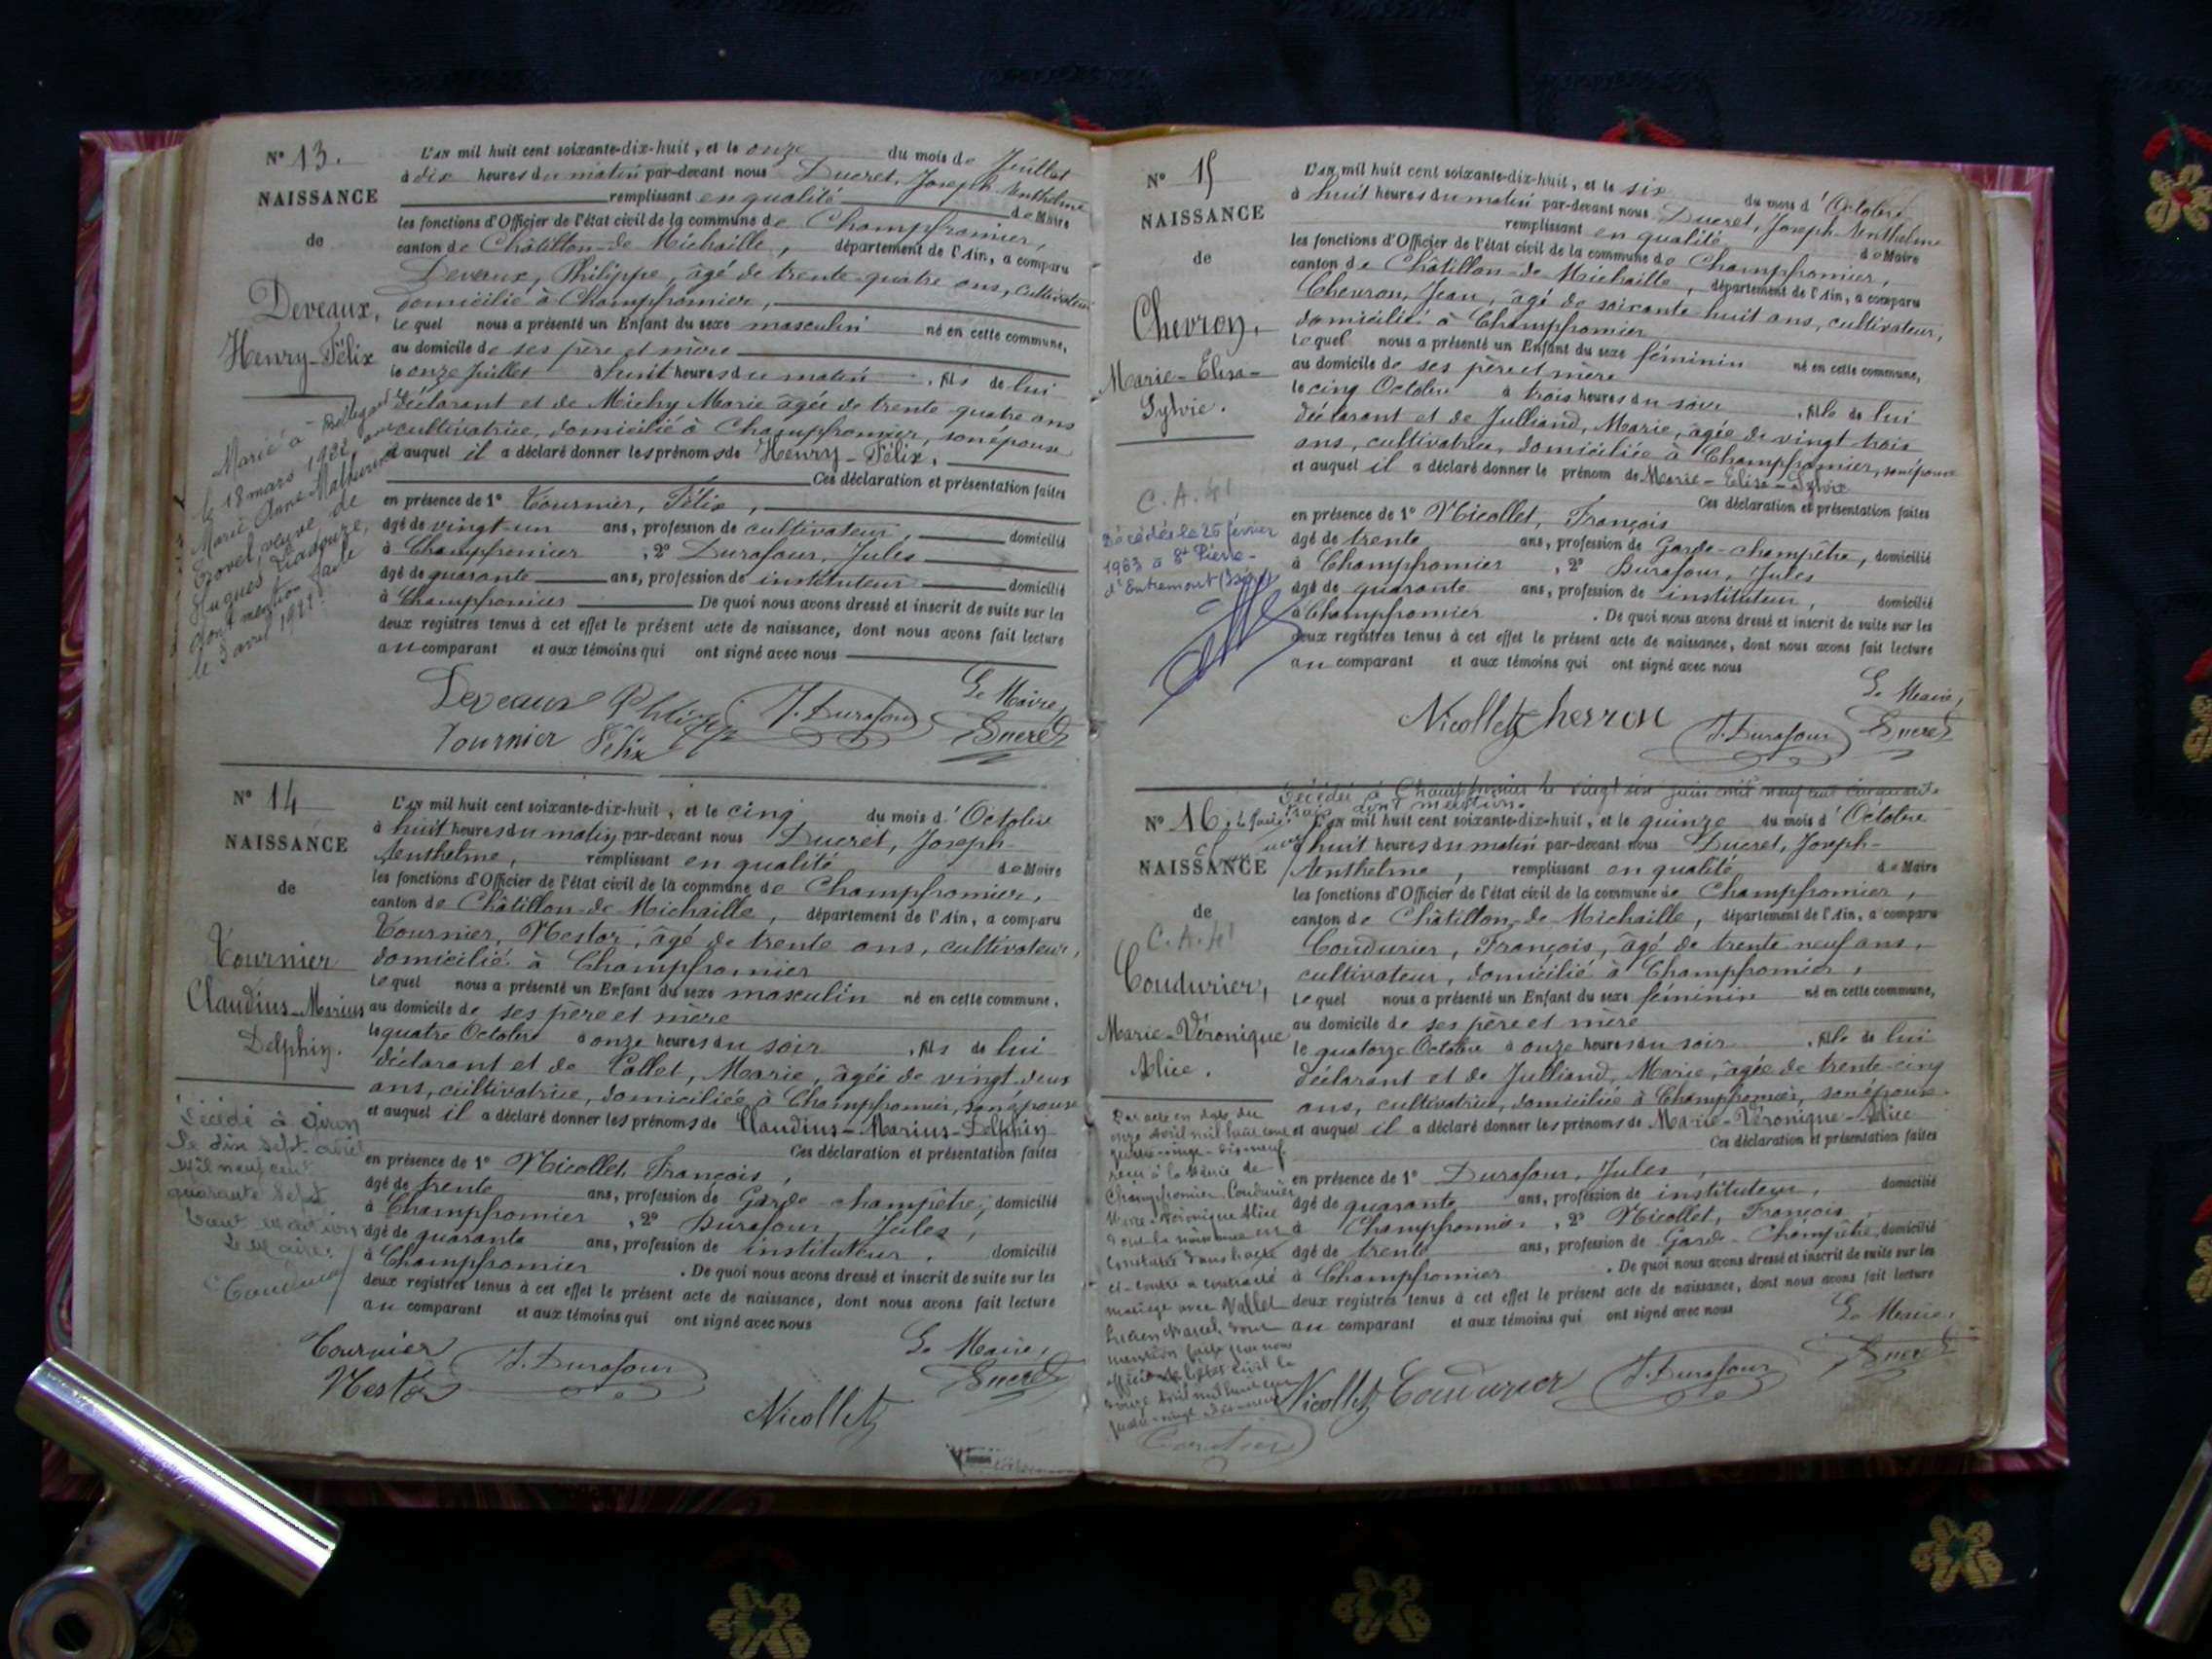 N° 13.
NAISSANCE
de
Deveaux,
Henry-Félix
Marié à Bellegarde
le 18 mars 1922 avec
Marie Anne Mathurine
veuve de
Hugues
dont mention faite
le 3 avril 1922.
L'AN mil huit cent soixante-dix-huit, et le onze du mois de Juillet
à dix heures du matin par-devant nous Ducret, Joseph Anthelme
remplissant en qualité de Maire
les fonctions d'Officier de l'état civil de la commune de Champfromier,
canton de Châtillon-de-Michaille, département de l'Ain, a comparu
Deveaux, Philippe, âgé de trente-quatre ans, cultivateur
domicilié à Champfromier,
lequel nous a présenté un Enfant du sexe masculin né en cette commune,
au domicile de ses père et mère
le onze Juillet à huit heures du matin, fils de lui
déclarant et de Michy Marie âgée de trente quatre ans
cultivatrice, domicilié à Champfromier, son épouse
et auquel il a déclaré donner les prénoms de Henry-Félix,
Ces déclaration et présentation faites
en présence de 1° Tournier, Félix,
âgé de vingt-un ans, profession de cultivateur, domicilié
à Champfromier, 2° Durafour, Jules
âgé de quarante ans, profession de instituteur domicilié
à Champfromier De quoi nous avons dressé et inscrit de suite sur les
deux registres tenus à cet effet le présent acte de naissance, dont nous avons fait lecture
au comparant et aux témoins qui ont signé avec nous
Le Maire,
Deveaux Philippe J. Durafour
Tournier Félix Ducret
N° 14
NAISSANCE
de
Tournier
Claudius-Marius
Delphin.
Décédé à
le dix sept avril
mil neuf cent
quarante sept
Le Maire:
L'AN mil huit cent soixante-dix-huit, et le cinq du mois d'Octobre
à huit heures du matin par-devant nous Ducret, Joseph-
Anthelme, remplissant en qualité de Maire
les fonctions d'Officier de l'état civil de la commune de Champfromier,
canton de Châtillon-de-Michaille, département de l'Ain, a comparu
Tournier, Nestor, âgé de trente ans, cultivateur,
domicilié à Champfromier
lequel nous a présenté un Enfant du sexe masculin né en cette commune,
au domicile de ses père et mère
le quatre Octobre à onze heures du soir, fils de lui
déclarant et de Collet, Marie, âgée de vingt-deux
ans, cultivatrice, domiciliée à Champfromier, son épouse
et auquel il a déclaré donner les prénoms de Claudius-Marius-Delphin
Ces déclaration et présentation faites
en présence de 1° Nicollet, François,
âgé de trente ans, profession de Garde-champêtre, domicilié
à Champfromier, 2° Durafour Jules,
âgé de quarante ans, profession de instituteur, domicilié
à Champfromier. De quoi nous avons dressé et inscrit de suite sur les
deux registres tenus à cet effet le présent acte de naissance, dont nous avons fait lecture
au comparant et aux témoins qui ont signé avec nous
Le Maire,
Tournier J. Durafour Ducret
Nestor
Nicollet
N° 15
NAISSANCE
de
Chevron,
Marie-Elisa-
Sylvie.
C.A. 41
Décédée le 26 février
1963 à St Pierre-
d'Entremont (Isère)
L'AN mil huit cent soixante-dix-huit, et le six du mois d'Octobre
à huit heures du matin par-devant nous Ducret, Joseph-Anthelme
remplissant en qualité de Maire
les fonctions d'Officier de l'état civil de la commune de Champfromier,
canton de Châtillon-de-Michaille, département de l'Ain, a comparu
Chevron, Jean, âgé de soixante-huit ans, cultivateur,
domicilié à Champfromier
lequel nous a présenté un Enfant du sexe féminin né en cette commune,
au domicile de ses père et mère
le cinq Octobre à trois heures du soir, fille de lui
déclarant et de Julliand, Marie, âgée de vingt trois
ans, cultivatrice, domiciliée à Champfromier, son épouse
et auquel il a déclaré donner le prénom de Marie-Elisa-Sylvie
Ces déclaration et présentation faites
en présence de 1° Nicollet, François
âgé de trente ans, profession de Garde-champêtre, domicilié
à Champfromier, 2° Durafour, Jules
âgé de quarante ans, profession de instituteur, domicilié
à Champfromier. De quoi nous avons dressé et inscrit de suite sur les
deux registres tenus à cet effet le présent acte de naissance, dont nous avons fait lecture
au comparant et aux témoins qui ont signé avec nous
Le Maire,
Nicollet Chevron J. Durafour Ducret
Décédée à Champfromier le vingt six juin mil neuf cent cinquante
trois dont mention.
N° 16.
NAISSANCE
de
C.A. 41
Coudurier,
Marie-Véronique
Alice.
Par acte en date du
onze avril mil huit cent
quatre-vingt-dix-neuf
reçu à la Mairie de
Champfromier Coudurier
Marie-Véronique Alice
dont la naissance est
constatée dans l'acte
ci-contre a contracté
mariage avec Vallet
Marcel dont
mention faite par nous
officier de l'état civil le
douze avril mil huit cent
quatre-vingt-dix-neuf
L'AN mil huit cent soixante-dix-huit, et le quinze du mois d'Octobre
à huit heures du matin par-devant nous Ducret, Joseph-
Anthelme, remplissant en qualité de Maire
les fonctions d'Officier de l'état civil de la commune de Champfromier,
canton de Châtillon-de-Michaille, département de l'Ain, a comparu
Coudurier, François, âgé de trente neuf ans,
cultivateur, domicilié à Champfromier,
lequel nous a présenté un Enfant du sexe féminin né en cette commune,
au domicile de ses père et mère
le quatorze Octobre à onze heures du soir, fille de lui
déclarant et de Julliand, Marie, âgée de trente-cinq
ans, cultivatrice, domiciliée à Champfromier, son épouse.
et auquel il a déclaré donner les prénoms de Marie-Véronique-Alice
Ces déclaration et présentation faites
en présence de 1° Durafour, Jules,
âgé de quarante ans, profession de instituteur, domicilié
à Champfromier, 2° Nicollet, François
âgé de trente ans, profession de Garde-Champêtre, domicilié
à Champfromier. De quoi nous avons dressé et inscrit de suite sur les
deux registres tenus à cet effet le présent acte de naissance, dont nous avons fait lecture
au comparant et aux témoins qui ont signé avec nous
Le Maire,
Nicollet Coudurier J. Durafour Ducret